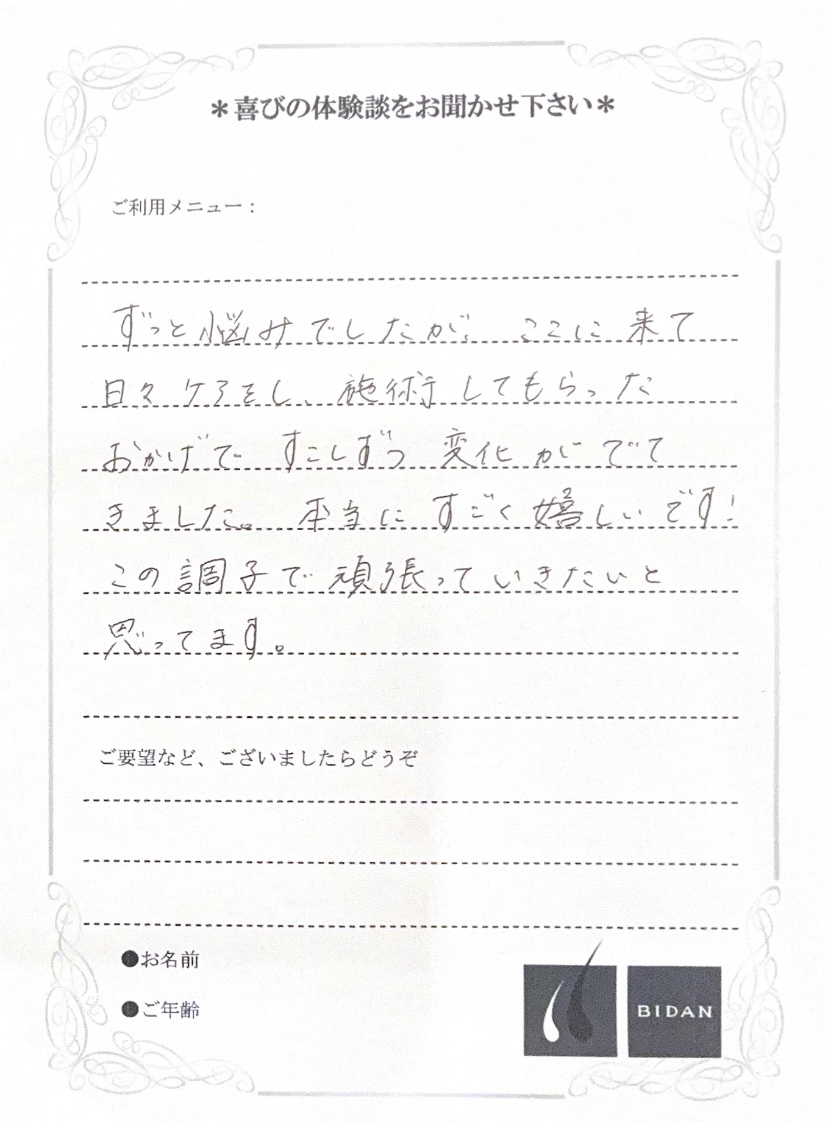 ＊喜びの体験談をお聞かせ下さい＊
ご利用メニュー：
ずっと悩みでしたが、ここに来て
日々ケアをし、施術してもらった
おかげですこしずつ変化がでて
きました。本当にすごく嬉しいです!
この調子で頑張っていきたいと
思ってます。
ご要望など、ございましたらどうぞ
●お名前
●ご年齢
BIDAN